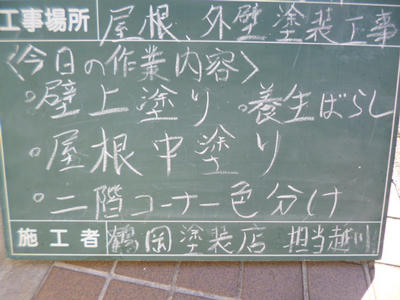 工事場所 屋根、外壁塗装工事
〈今日の作業内容〉
◦壁上塗り ◦養生ばらし
◦屋根中塗り
◦二階コーナー色分け
施工者 鶴岡塗装店 担当越川